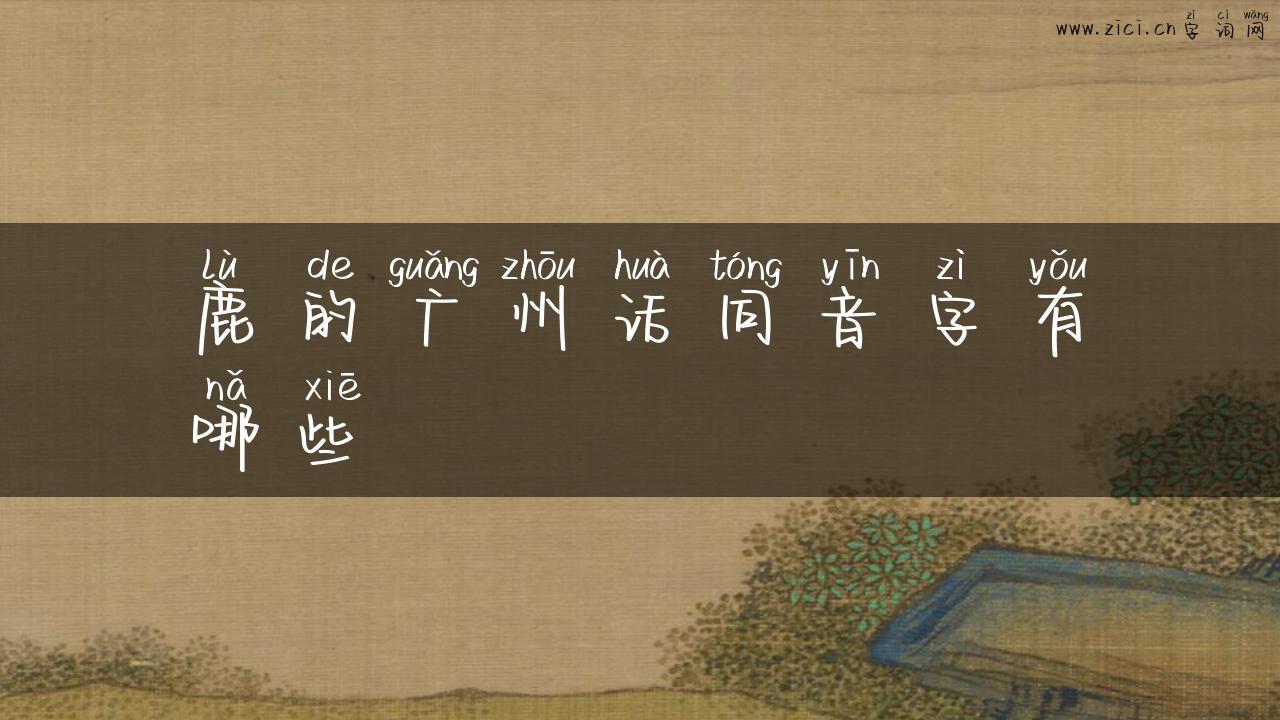 zì cí wǎng
www.zici.cn 字词网
lù de guǎng zhōu huà tóng yīn zì yǒu
鹿的广州话同音字有
nǎ xiē
哪些